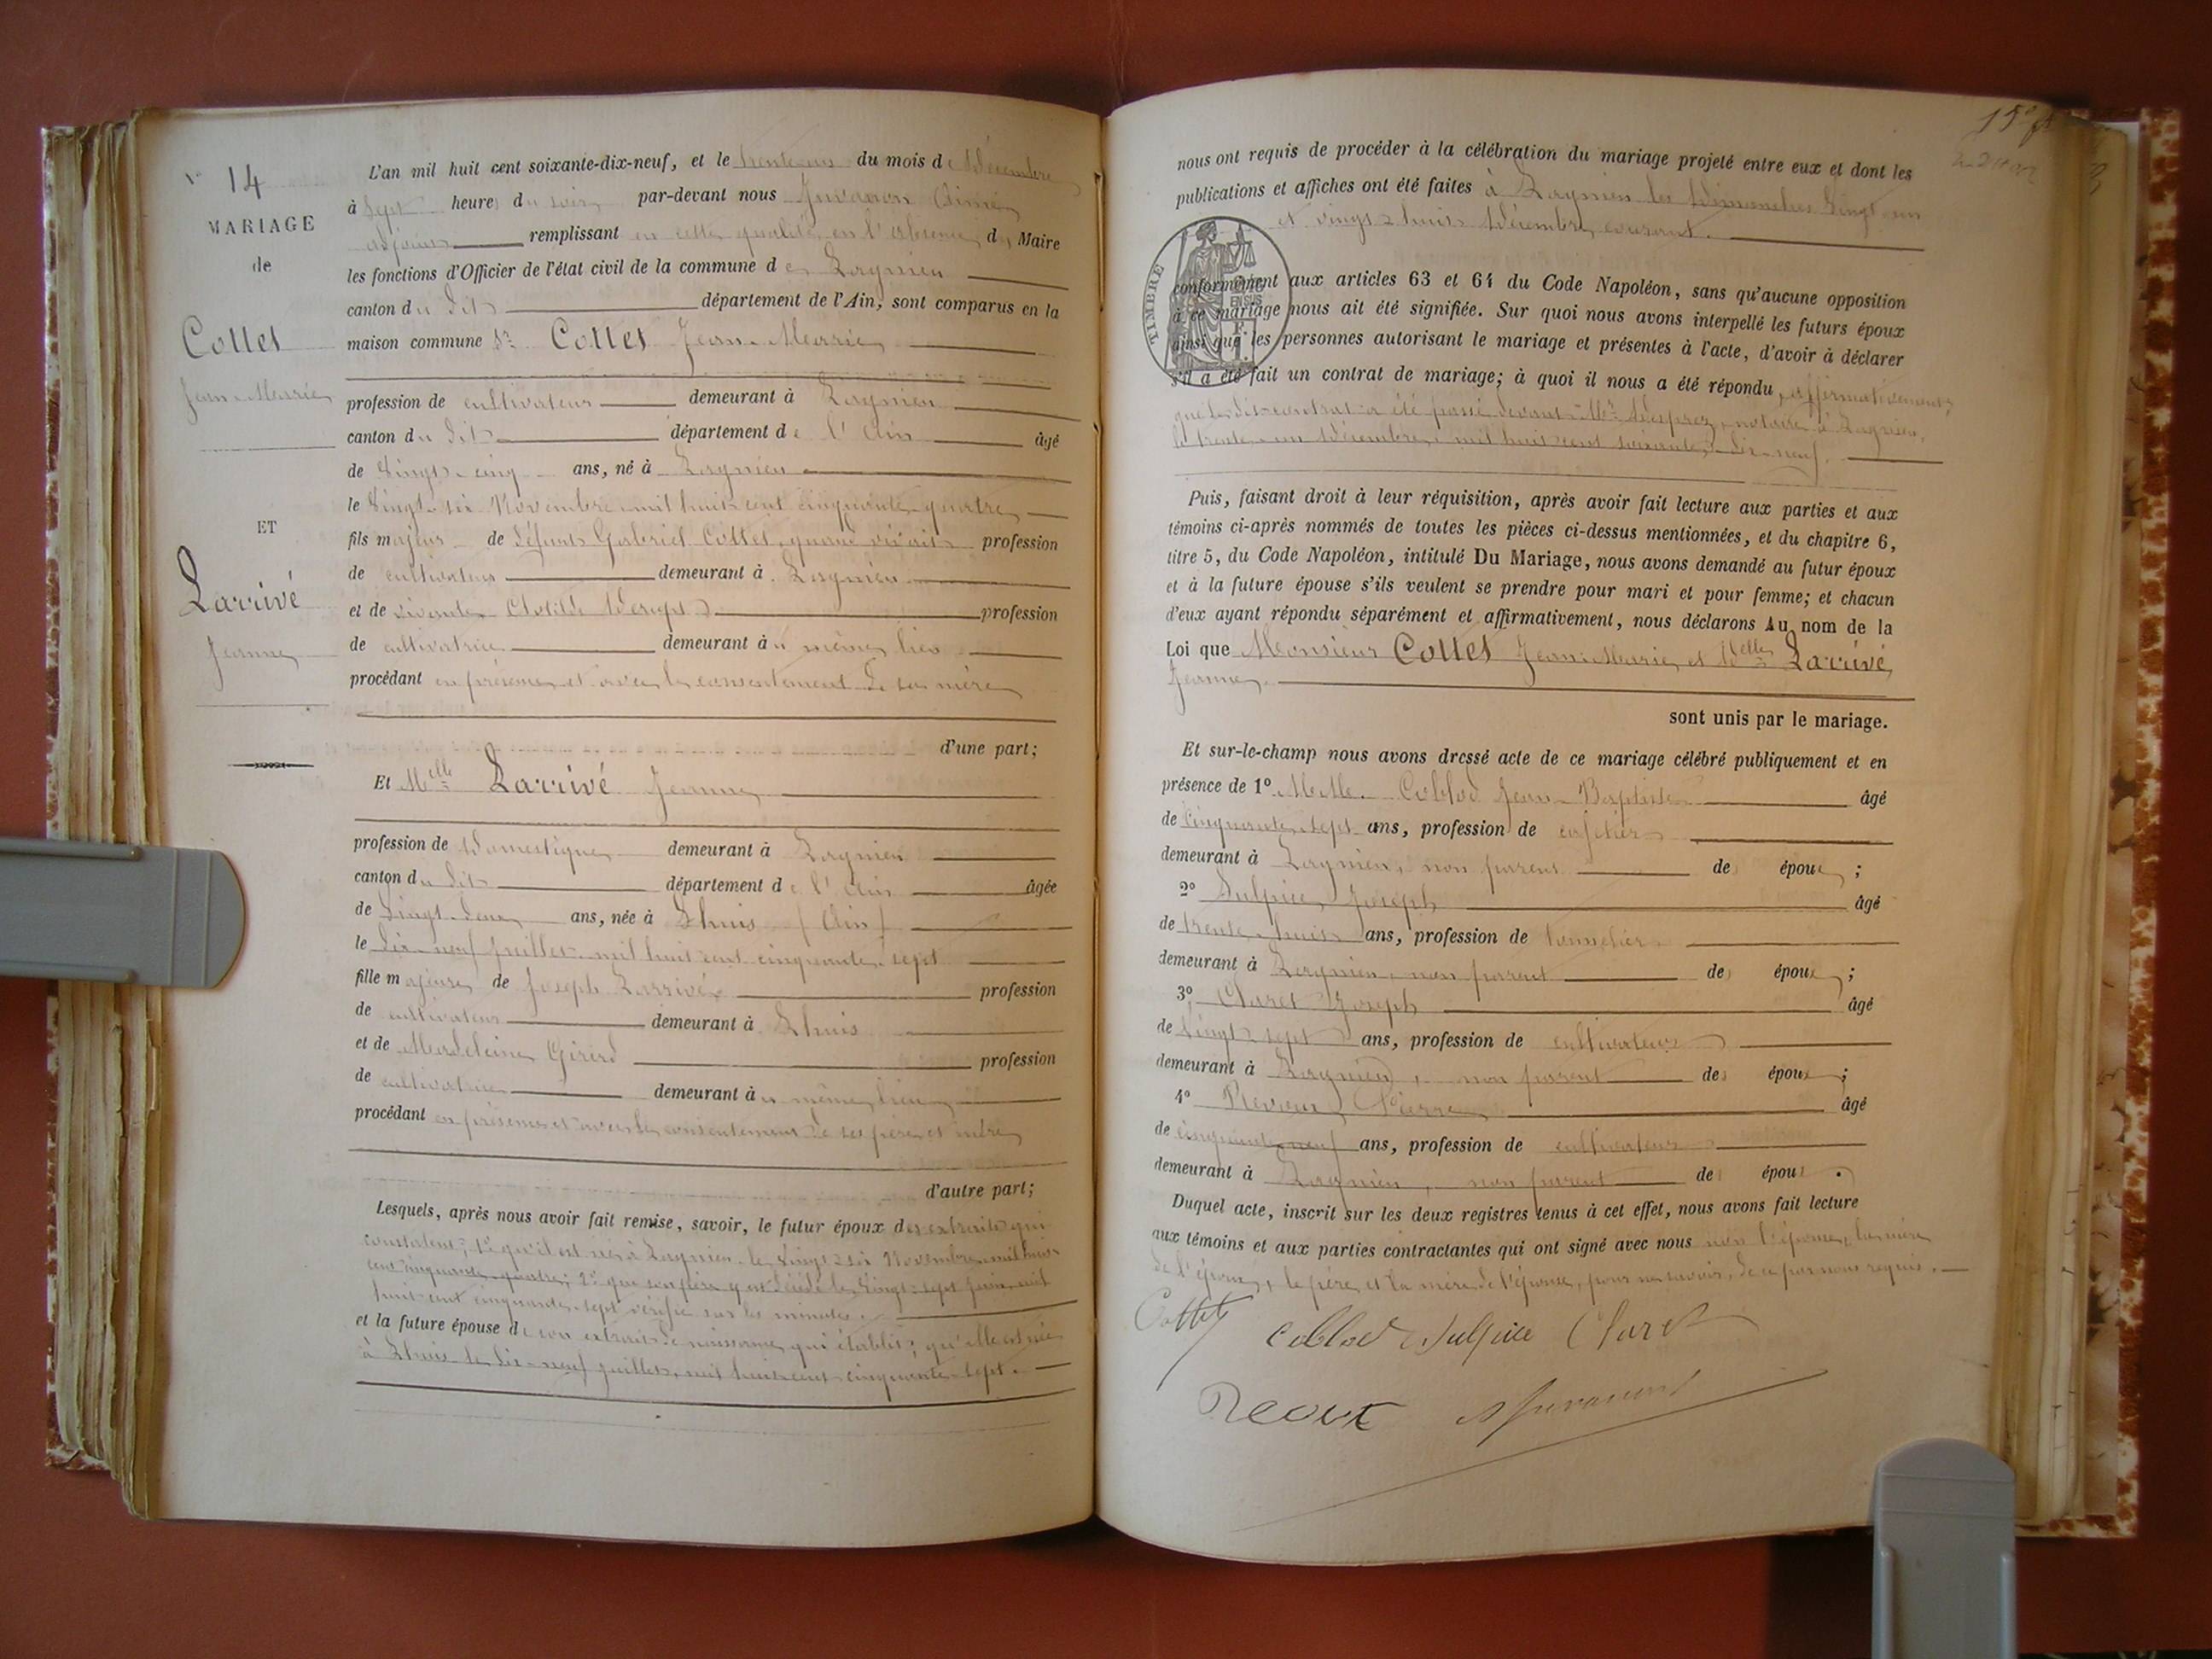 N° 14
MARIAGE
de
Collet
Jean-Marie
ET
Larrivé
Jeanne
L'an mil huit cent soixante-dix-neuf, et le trente-un du mois de Décembre
à sept heures du soir, par-devant nous Juvanon Aimé
adjoint remplissant en cette qualité, en l'absence du Maire
les fonctions d'Officier de l'état civil de la commune de Lagnieu
canton du dit département de l'Ain, sont comparus en la
maison commune Sr Collet Jean-Marie
profession de cultivateur demeurant à Lagnieu
canton du dit département de l'Ain âgé
de vingt-cinq ans, né à Lagnieu
le vingt-six Novembre mil huit cent cinquante-quatre
fils majeur de défunt Gabriel Collet, quand vivait profession
de cultivateur demeurant à Lagnieu
et de vivante Clotilde profession
de cultivatrice demeurant au même lieu
procédant en présence et avec le consentement de sa mère
d'une part;
Et Melle Larrivé Jeanne
profession de Domestique demeurant à Lagnieu
canton du dit département de l'Ain âgée
de vingt-deux ans, née à Lhuis (Ain)
le dix-neuf juillet mil huit cent cinquante-sept
fille majeure de Joseph Larrivé profession
de cultivateur demeurant à Lhuis
et de Madeleine Girerd profession
de cultivatrice demeurant au même lieu
procédant en présence et avec le consentement de ses père et mère
d'autre part;
Lesquels, après nous avoir fait remise, savoir, le futur époux des extraits qui
constatent; 1° qu'il est né à Lagnieu le vingt-six Novembre mil huit
cent cinquante-quatre; 2° que son père y est décédé le vingt-sept juin mil
huit cent cinquante-sept vérifié sur les minutes.
et la future épouse de son extrait de naissance qui établit; qu'elle est née
à Lhuis le dix-neuf juillet, mil huit cent cinquante-sept.
15e
nous ont requis de procéder à la célébration du mariage projeté entre eux et dont les
publications et affiches ont été faites à Lagnieu les Dimanches vingt-un
et vingt-huit Décembre courant.
TIMBRE
conformément aux articles 63 et 64 du Code Napoléon, sans qu'aucune opposition
à ce mariage nous ait été signifiée. Sur quoi nous avons interpellé les futurs époux
ainsi que les personnes autorisant le mariage et présentes à l'acte, d'avoir à déclarer
s'il a été fait un contrat de mariage; à quoi il nous a été répondu, affirmativement,
que le dit contrat a été passé devant Me notaire à Lagnieu,
le trente-un Décembre, mil huit cent soixante-dix-neuf.
Puis, faisant droit à leur réquisition, après avoir fait lecture aux parties et aux
témoins ci-après nommés de toutes les pièces ci-dessus mentionnées, et du chapitre 6,
titre 5, du Code Napoléon, intitulé Du Mariage, nous avons demandé au futur époux
et à la future épouse s'ils veulent se prendre pour mari et pour femme; et chacun
d'eux ayant répondu séparément et affirmativement, nous déclarons Au nom de la
Loi que Monsieur Collet Jean-Marie et Delle Larrivé
Jeanne.
sont unis par le mariage.
Et sur-le-champ nous avons dressé acte de ce mariage célébré publiquement et en
présence de 1° M.M. Collod Jean-Baptiste âgé
de cinquante-sept ans, profession de cafetier
demeurant à Lagnieu, non parent des époux;
2° Sulpice Joseph âgé
de trente-huit ans, profession de tonnelier
demeurant à Lagnieu, non parent des époux;
3° Claret Joseph âgé
de vingt-sept ans, profession de cultivateur
demeurant à Lagnieu, non parent des époux;
4° Pierre âgé
de cinquante-neuf ans, profession de cultivateur
demeurant à Lagnieu, non parent des époux.
Duquel acte, inscrit sur les deux registres tenus à cet effet, nous avons fait lecture
aux témoins et aux parties contractantes qui ont signé avec nous non l'épouse, la mère
de l'époux, le père et la mère de l'épouse, pour ne savoir, de ce par nous requis.
Collet
Collod Sulpice Claret
A Juvanon